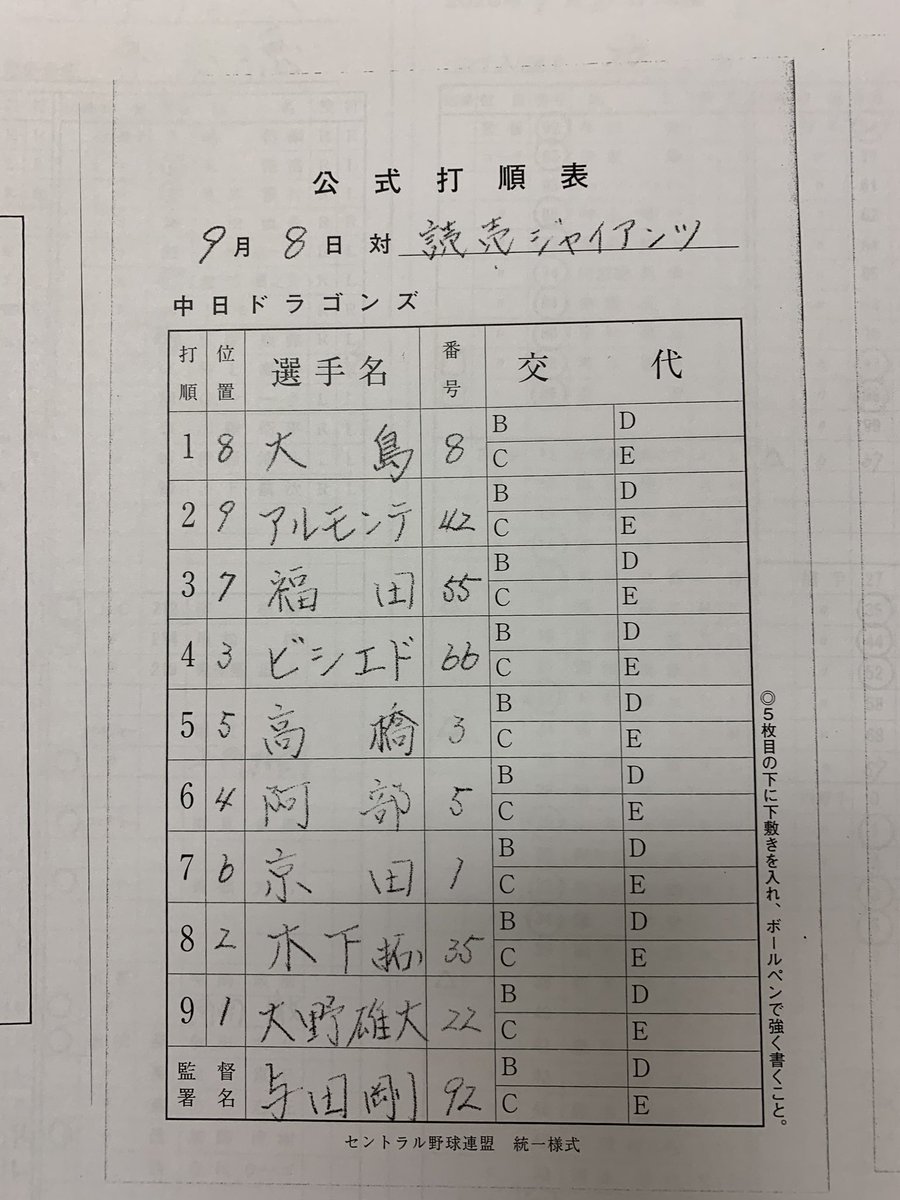 公式打順表
9月8日 対 読売ジャイアンツ
中日ドラゴンズ
打順 位置 選手名 番号 交代
1 8 大島 8 B D C E
2 9 アルモンテ 42 B D C E
3 7 福田 55 B D C E
4 3 ビシエド 66 B D C E
5 5 高橋 3 B D C E
6 4 阿部 5 B D C E
7 6 京田 1 B D C E
8 2 木下拓 35 B D C E
9 1 大野雄大 22 B D C E
監督署名 与田剛 92 B D C E
セントラル野球連盟 統一様式
◎5枚目の下に下敷きを入れ、ボールペンで強く書くこと。